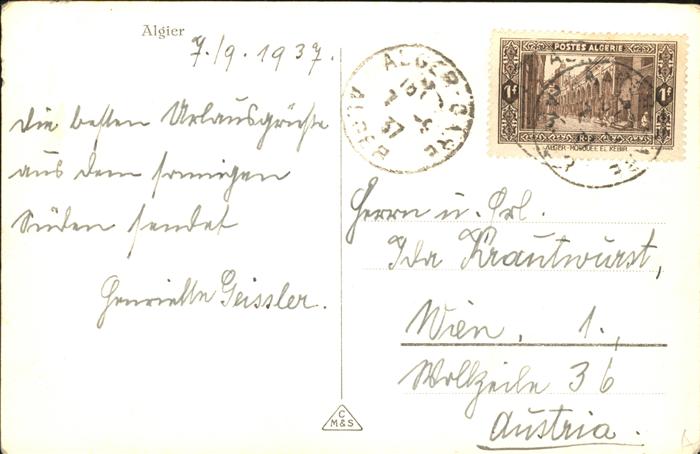 Algier
7./9. 1937.
die besten Urlaubsgrüße
aus dem sonnigen
Süden sendet
Henriette Geissler.
ALGER-GARE
ALGER
POSTES ALGERIE
1F
1F
RF
ALGER-MOSQUÉE EL KEBIR
Herrn u. Frl.
Ida Krautwurst,
Wien, 1.,
Wollzeile 36
Austria.
C
M&S